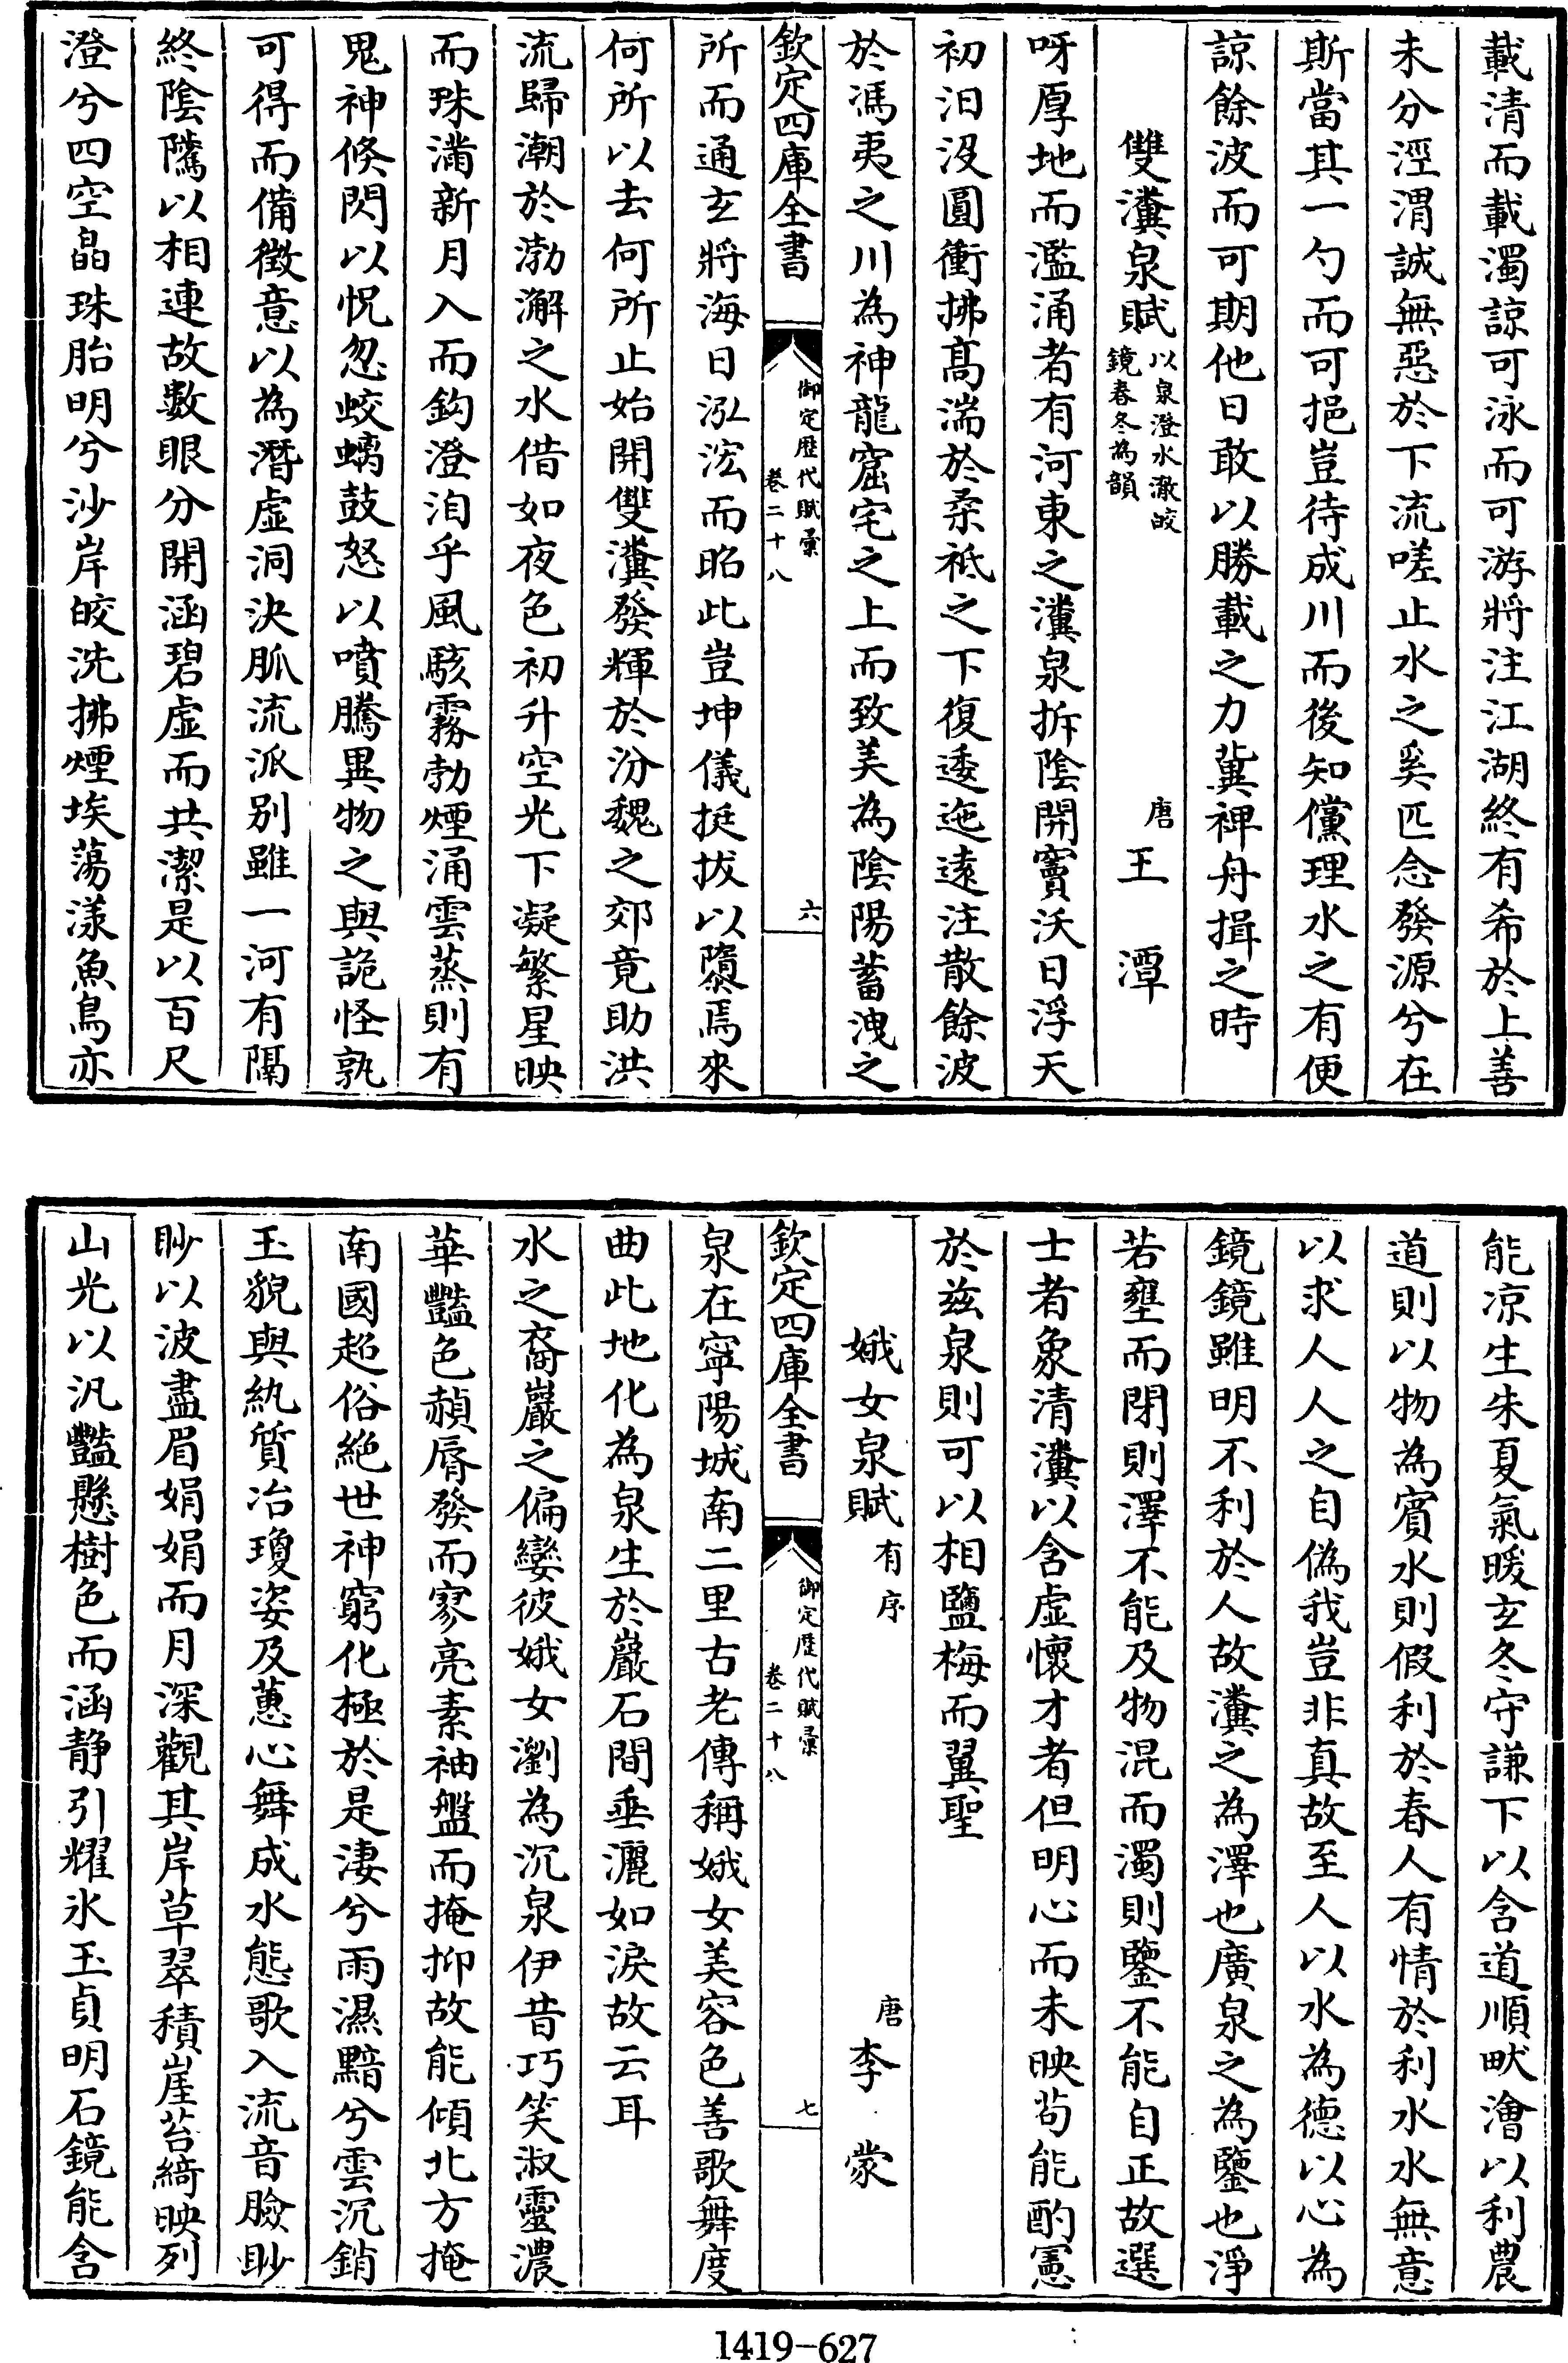 載清而載濁諒可泳而可游將注江湖終有希於上善
未分涇渭誠無惡於下流嗟止水之奚匹念發源兮在
斯當其一勺而可挹豈待成川而後知儻理水之有便
諒餘波而可期他日敢以勝載之力冀裨舟揖之時
雙瀵泉賦 以泉澄水澈皎鏡春冬為韻 唐 王潭
呀厚地而濫涌者有河東之瀵泉拆陰開竇沃日浮天
初汨沒圓衝拂髙湍於柔祗之下復逶迤遠注散餘波
於馮夷之川為神龍窟宅之上而致美為陰陽蓄洩之
欽定四庫全書 御定歷代賦彙 卷二十八 六
所而通玄將海日泓浤而昭此豈坤儀挺拔以隳焉來
何所以去何所止始開雙瀵發輝於汾魏之郊竟助洪
流歸潮於渤澥之水借如夜色初升空光下凝繁星映
而珠滿新月入而鈎澄洎乎風駭霧勃煙涌雲蒸則有
鬼神倏閃以怳忽蛟螭鼓怒以噴騰異物之與詭怪孰
可得而備徵意以為潛虛洞決脈流派別雖一河有隔
終陰隲以相連故數眼分開涵碧虛而共潔是以百尺
澄兮四空晶珠胎明兮沙岸皎洗拂煙埃蕩漾魚鳥亦
能凉生朱夏氣暖玄冬守謙下以含道順畎澮以利農
道則以物為賓水則假利於春人有情於利水水無意
以求人人之自偽我豈非真故至人以水為德以心為
鏡鏡雖明不利於人故瀵之為澤也廣泉之為鑒也淨
若壅而閉則澤不能及物混而濁則鑒不能自正故選
士者象清瀵以含虛懷才者但明心而未映茍能酌憲
於茲泉則可以相鹽梅而翼聖
娥女泉賦 有序 唐 李蒙
欽定四庫全書 御定歷代賦彙 卷二十八 七
泉在寧陽城南二里古老傳稱娥女美容色善歌舞度
曲此地化為泉生於巖石間垂灑如淚故云耳
水之裔巖之偏孌彼娥女瀏為沉泉伊昔巧笑淑靈濃
華豔色赬脣發而寥亮素袖盤而掩抑故能傾北方掩
南國超俗絕世神窮化極於是淒兮雨濕黯兮雲沉銷
玉貌與紈質冶瓊姿及蕙心舞成水態歌入流音臉眇
眇以波盡眉娟娟而月深觀其岸草翠積崖苔綺映列
山光以汎豔懸樹色而涵静引耀氷玉貞明石鏡能含
1419-627